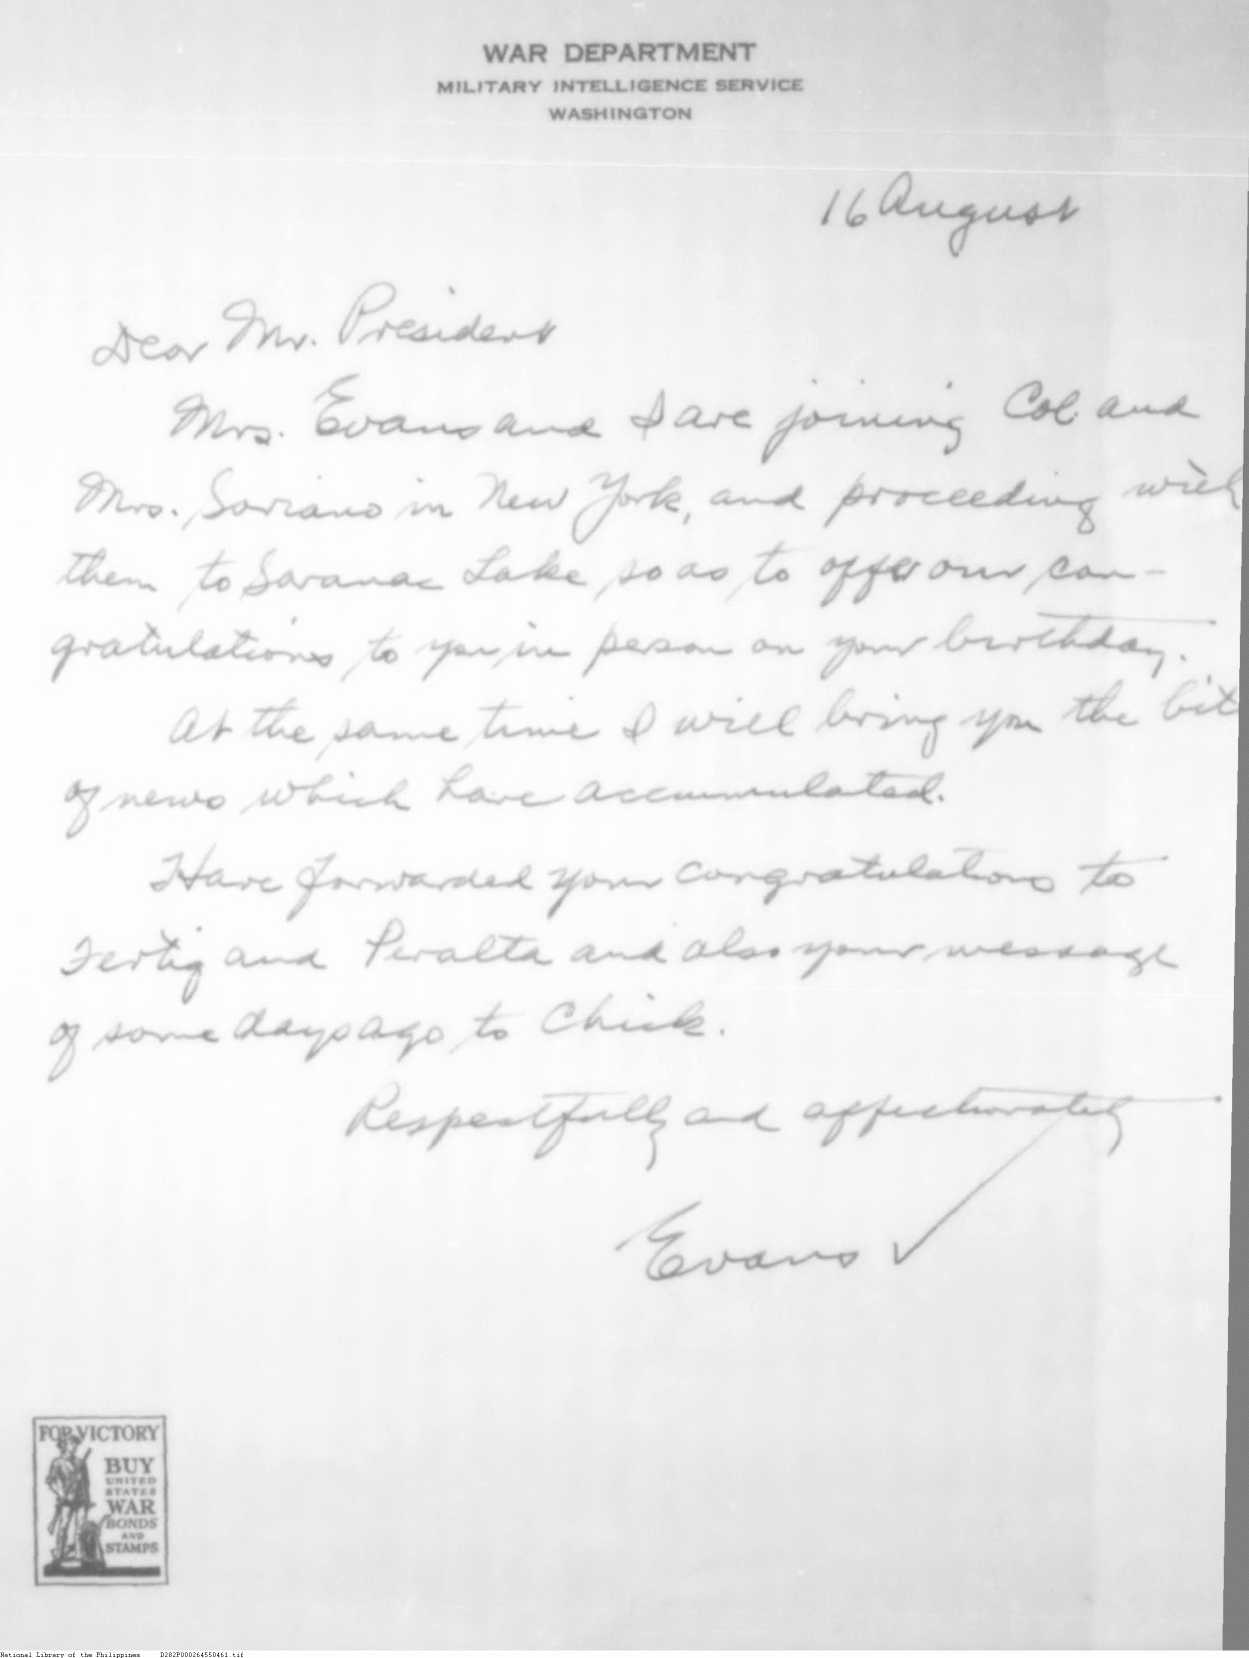 WAR DEPARTMENT
MILITARY INTELLIGENCE SERVICE
WASHINGTON
16 August
Dear Mr. President
Mrs. Evans and I are joining Col. and
Mrs. Soriano in New York, and proceeding with
them to Saranac Lake, so as to offer our con-
gratulations to you in person on your birthday.
At the same time I will bring you the bit
of news which have accumulated.
Have forwarded your congratulations to
Fertig and Peralta and also your message
of some days ago to Chick.
Respectfully and affectionately
Evans
FOR VICTORY
BUY
UNITED
STATES
WAR
BONDS
AND
STAMPS
National Library of the Philippines D282P000264550461.tif